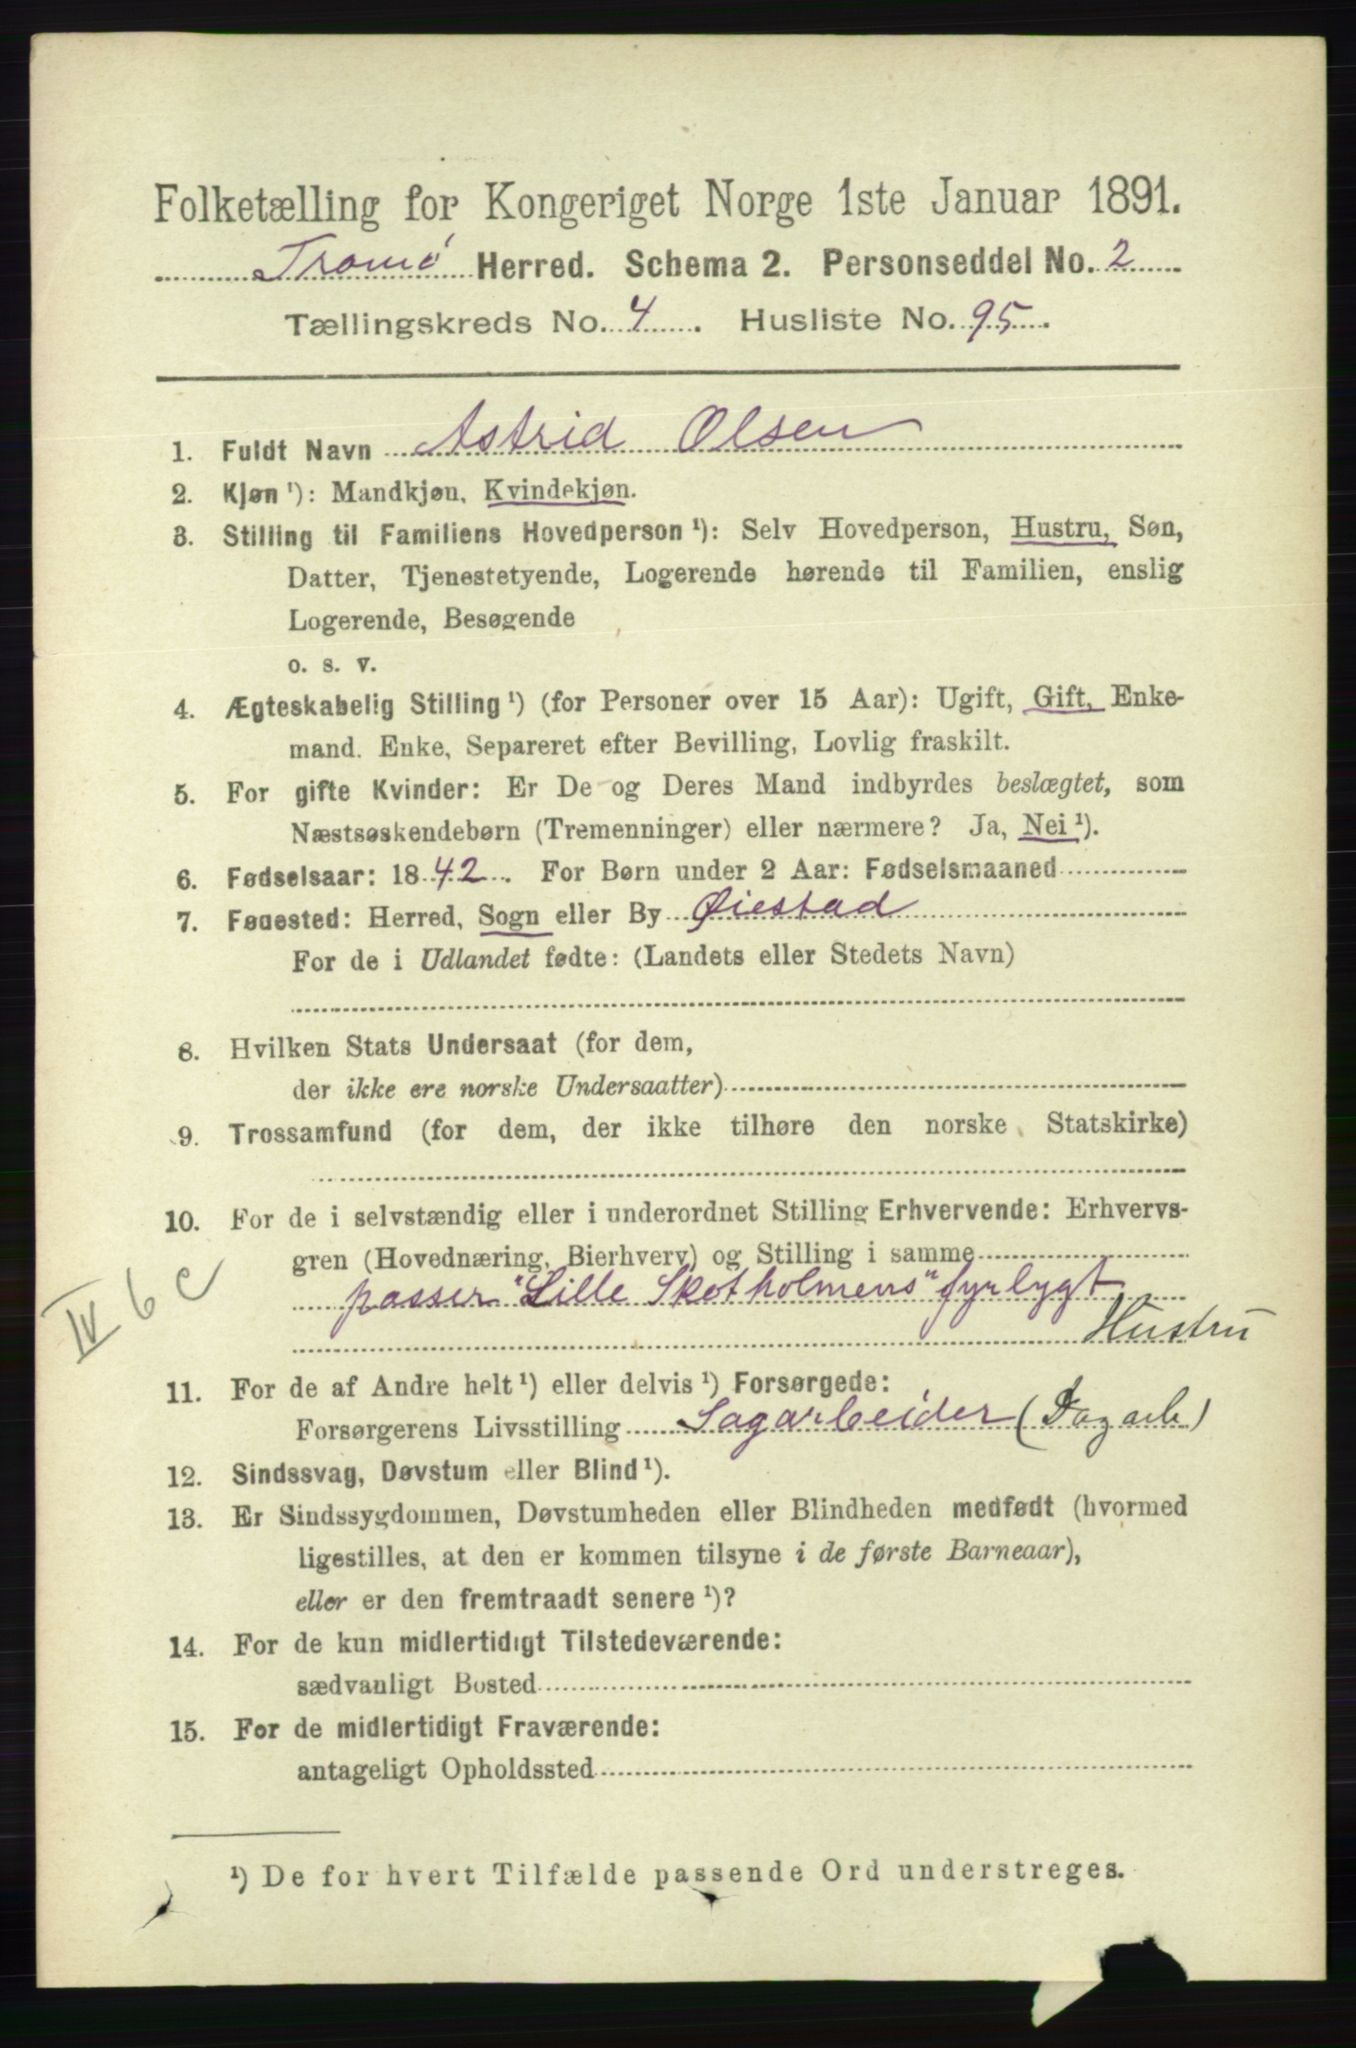 Folketælling for Kongeriget Norge 1ste Januar 1891.
Tromø Herred. Schema 2. Personseddel No. 2
Tællingskreds No. 4. Husliste No. 95.
1. Fuldt Navn Astrid Olsen
2. Kjøn ¹): Mandkjøn, Kvindekjøn.
3. Stilling til Familiens Hovedperson ¹): Selv Hovedperson, Hustru, Søn,
Datter, Tjenestetyende, Logerende hørende til Familien, enslig
Logerende, Besøgende
o. s. v.
4. Ægteskabelig Stilling ¹) (for Personer over 15 Aar): Ugift, Gift, Enke-
mand. Enke, Separeret efter Bevilling, Lovlig fraskilt.
5. For gifte Kvinder: Er De og Deres Mand indbyrdes beslægtet, som
Næstsøskendebørn (Tremenninger) eller nærmere? Ja, Nei ¹).
6. Fødselsaar: 1842. For Børn under 2 Aar: Fødselsmaaned
7. Fødested: Herred, Sogn eller By Øiestad
For de i Udlandet fødte: (Landets eller Stedets Navn)
8. Hvilken Stats Undersaat (for dem,
der ikke ere norske Undersaatter)
9. Trossamfund (for dem, der ikke tilhøre den norske Statskirke)
10. For de i selvstændig eller i underordnet Stilling Erhvervende: Erhvervs-
gren (Hovednæring, Bierhverv) og Stilling i samme
passer "Lille Skotholmens" fyrlygt
Hustru
IV 6 c
11. For de af Andre helt ¹) eller delvis ¹) Forsørgede:
Forsørgerens Livsstilling Sagarbeider (Dagarb)
12. Sindssvag, Døvstum eller Blind ¹).
13. Er Sindssygdommen, Døvstumheden eller Blindheden medfødt (hvormed
ligestilles, at den er kommen tilsyne i de første Barneaar),
eller er den fremtraadt senere ¹)?
14. For de kun midlertidigt Tilstedeværende:
sædvanligt Bosted
15. For de midlertidigt Fraværende:
antageligt Opholdssted
¹) De for hvert Tilfælde passende Ord understreges.